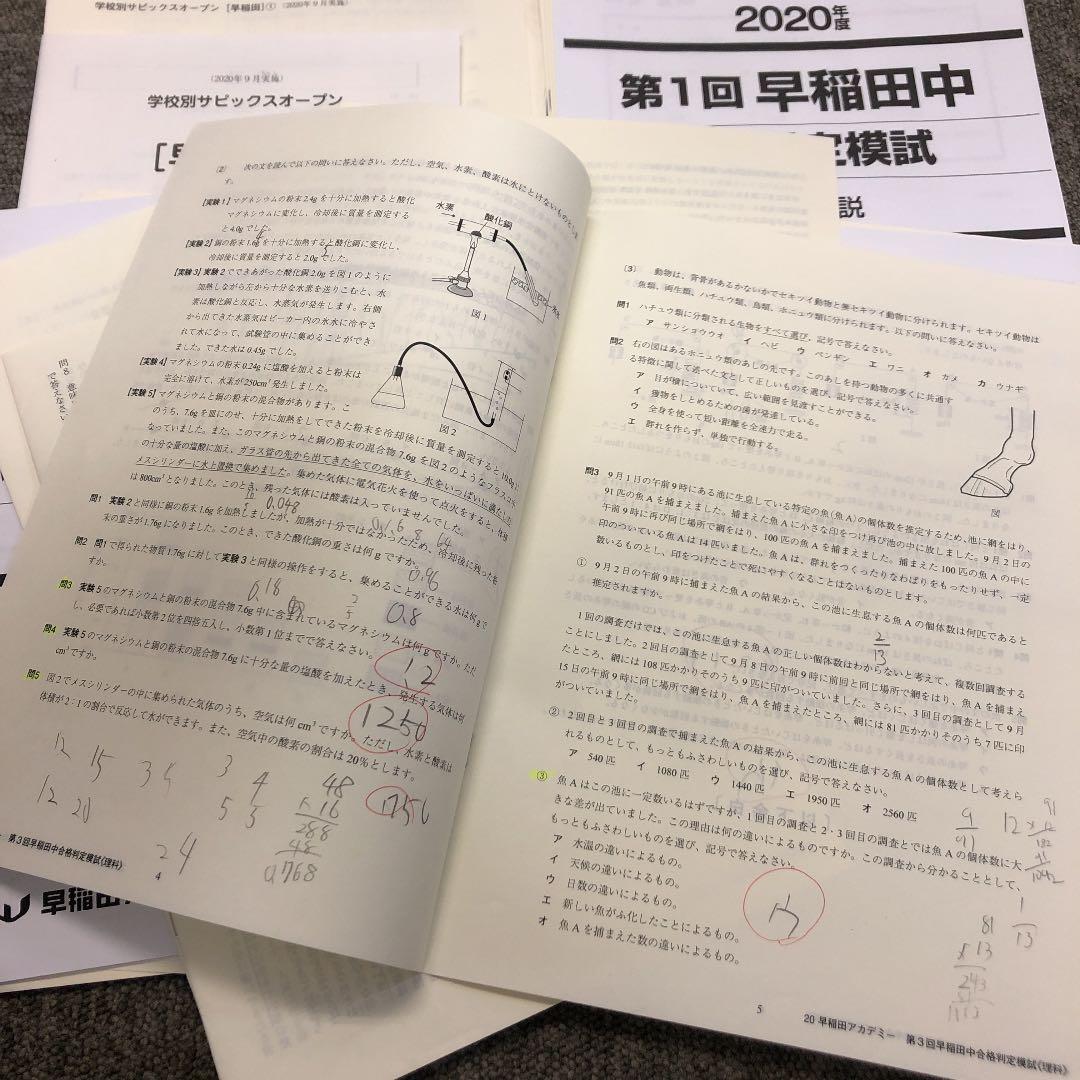 学校別サピックスオープン [早稲田]① (2020年9月実施)
(2020年9月実施)
学校別サピックスオープン
2020年度
第1回 早稲田中
模試
説
〔2〕 次の文を読んで以下の問いに答えなさい。ただし、空気、水素、酸素は水にとけないものとしま
す。
[実験1]マグネシウムの粉末2.4gを十分に加熱すると酸化
マグネシウムに変化し、冷却後に質量を測定する
と4.0gでした。
[実験2]銅の粉末1.6gを十分に加熱すると酸化銅に変化し、
冷却後に質量を測定すると2.0gでした。
[実験3]実験2でできあがった酸化銅2.0gを図1のように
加熱しながら左から十分な水素を送りこむと、水
素は酸化銅と反応し、水蒸気が発生します。右側
から出てきた水蒸気はビーカー内の氷水に冷やさ
れて水になって、試験管の中に集めることができ
ました。できた水は0.45gでした。
[実験4]マグネシウムの粉末0.24gに塩酸を加えると粉末は
完全に溶けて、水素が250cm³発生しました。
[実験5]マグネシウムと銅の粉末の混合物があります。こ
のうち、7.6gを皿にのせ、十分に加熱をしてできた粉末を冷却後に質量を測定すると10.0gに
なっていました。また、このマグネシウムと銅の粉末の混合物7.6gを図2のようなフラスコ
の十分な量の塩酸に加え、ガラス管の先から出てきた全ての気体を、水をいっぱいに満たした
メスシリンダーに水上置換で集めました。集めた気体に電気花火を使って点火をすると、体積
は800cm³となりました。このとき、残った気体には酸素は入っていませんでした。
水素
酸化銅
氷水
図1
図2
問1 実験2と同様に銅の粉末1.6gを加熱しましたが、加熱が十分ではなかったため、冷却後に残った粉
末の重さが1.76gになりました。このとき、できた酸化銅の重さは何gですか。
0.048
64
問2 問1で得られた物質1.76gに対して実験3と同様の操作をすると、集めることができる水は何gで
すか。
0.96
0.18
0.8
問3 実験5のマグネシウムと銅の粉末の混合物7.6g中に含まれているマグネシウムは何gですか。ただ
し、必要であれば小数第2位を四捨五入し、小数第1位までで答えなさい。
1.2
問4 実験5のマグネシウムと銅の粉末の混合物7.6gに十分な量の塩酸を加えたとき、発生する気体は何
cm³ですか。
1250
問5 図2でメスシリンダーの中に集められた気体のうち、空気は何cm³ですか。ただし、水素と酸素は
体積が2:1の割合で反応して水ができます。また、空気中の酸素の割合は20%とします。
12 15
12 20
24
3 4
5 5
48
16
288
48
0.768
4
第3回早稲田中合格判定模試(理科)
早稲田
〔3〕 動物は、背骨があるかないかでセキツイ動物と無セキツイ動物に分けられます。セキツイ動物は
魚類、両生類、ハチュウ類、鳥類、ホニュウ類に分けられます。以下の問いに答えなさい。
問1 ハチュウ類に分類される生物をすべて選び、記号で答えなさい。
ア サンショウウオ イ ヘビ ウ ペンギン エ ワニ オ カメ カ ウナギ
問2 右の図はあるホニュウ類のあしの先です。このあしを持つ動物の多くに共通す
る特徴に関して述べた文として正しいものを選び、記号で答えなさい。
ア 目が横についていて、広い範囲を見渡すことができる。
イ 獲物をしとめるための歯が発達している。
ウ 全身を使って短い距離を全速力で走る。
エ 群れを作らず、単独で行動する。
図
問3 9月1日の午前9時にある池に生息している特定の魚(魚A)の個体数を推定するため、池に網をはり、
91匹の魚Aを捕まえました。捕まえた魚Aに小さな印をつけ再び池の中に放しました。9月2日の
午前9時に再び同じ場所で網をはり、100匹の魚Aを捕まえました。捕まえた100匹の魚Aの中に
印のついている魚Aは14匹いました。魚Aは、群れをつくったりなわばりをもったりせず、一定
数いるものとし、印をつけたことで死にやすくなることはないものとします。
① 9月2日の午前9時に捕まえた魚Aの結果から、この池に生息する魚Aの個体数は何匹であると
推定されますか。
2
13
1回の調査だけでは、この池に生息する魚Aの正しい個体数はわからないと考えて、複数回調査する
ことにしました。2回目の調査として9月8日の午前9時に前回と同じ場所で網をはり、魚Aを捕まえ
たところ、網には108匹かかりそのうち9匹に印がついていました。さらに、3回目の調査として9月
15日の午前9時に同じ場所で網をはり、魚Aを捕まえたところ、網には81匹かかりそのうち7匹に印
がついていました。
② 2回目と3回目の調査で捕まえた魚Aの結果から、この池に生息する魚Aの個体数として考えら
れるものとして、もっともふさわしいものを選び、記号で答えなさい。
ア 540匹 イ 1080匹 ウ 1440匹 エ 1950匹 オ 2560匹
③ 魚Aはこの池に一定数いるはずですが、1回目の調査と2・3回目の調査とでは魚Aの個体数に大
きな差が出ていました。この理由は何の違いによるものですか。この調査から分かることとして、
もっともふさわしいものを選び、記号で答えなさい。
ア 水温の違いによるもの。
イ 天候の違いによるもの。
ウ 日数の違いによるもの。
エ 新しい魚がふ化したことによるもの。
オ 魚Aを捕まえた数の違いによるもの。
ウ
9
91
12
1
13
81
× 13
243
5
20 早稲田アカデミー 第3回早稲田中合格判定模試(理科)